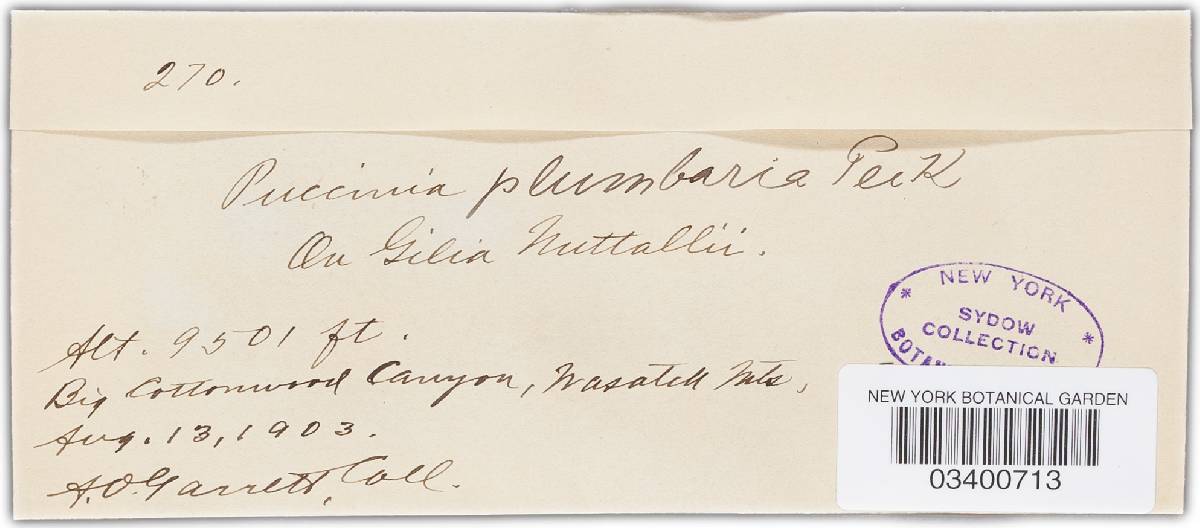 270.
Puccinia plumbaria Peck
On Gilia Nuttallii.
Alt. 9501 ft.
Big Cottonwood Canyon, Wasatch Mts,
Aug. 13, 1903.
A.O. Garrett, Coll.
* NEW YORK *
SYDOW
COLLECTION
NEW YORK BOTANICAL GARDEN
03400713